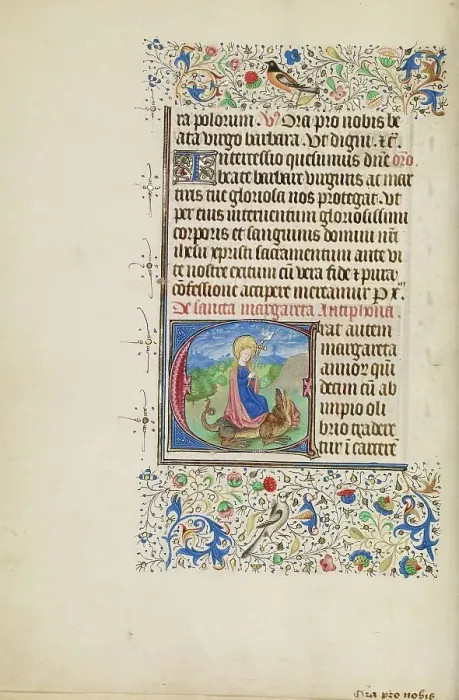 ra polorum. V Ora pro nobis be
ata virgo barbara. Vt digni. ⁊c̄.
Intercessio quesumus dn̄e oro.
beate barbare virginis ac mar
tiris tue gloriosa nos protegat. vt
per eius interuentum gloriosissimi
corporis et sanguinis domini nr̄i
ihesu xpristi sacramentum ante vi
te nostre exitum cū vera fide ⁊ pura
cōfessione accipere mereamur P x̄
De sancta margareta Antiphona.
Erat autem
margareta
annoꝝ qui
decim cū ab
impio oli
brio tradere
tur ī carcerē
Ora pro nobis